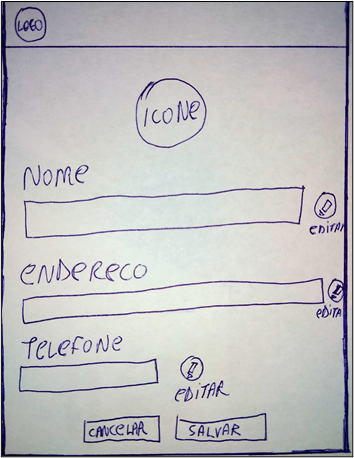 LOGO
ICONE
NOME
EDITAR
ENDERECO
EDITA
TELEFONE
EDITAR
CANCELAR
SALVAR